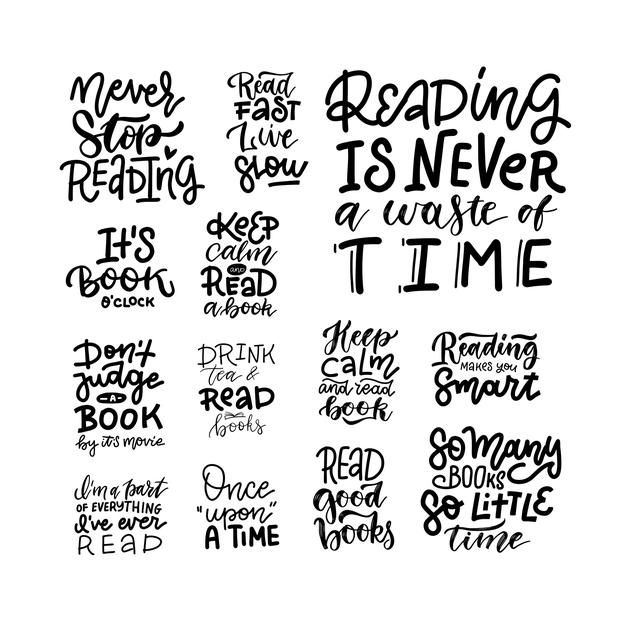 Never
Stop
READING
Read
FAST
Live
slow
READING
IS NEVER
a waste of
TIME
IT'S
BOOK
O'CLOCK
KEEP
calm
and
READ
a book
Don't
judge
A
BOOK
by it's movie
DRINK
tea &
Read
books
Keep
CALM
and read
book
Reading
MAKES you
Smart
I'm a part
OF EVERYTHING
I've ever
READ
Once
"upon"
A TIME
READ
good
books
So Many
BOOKS
So LITTLE
time